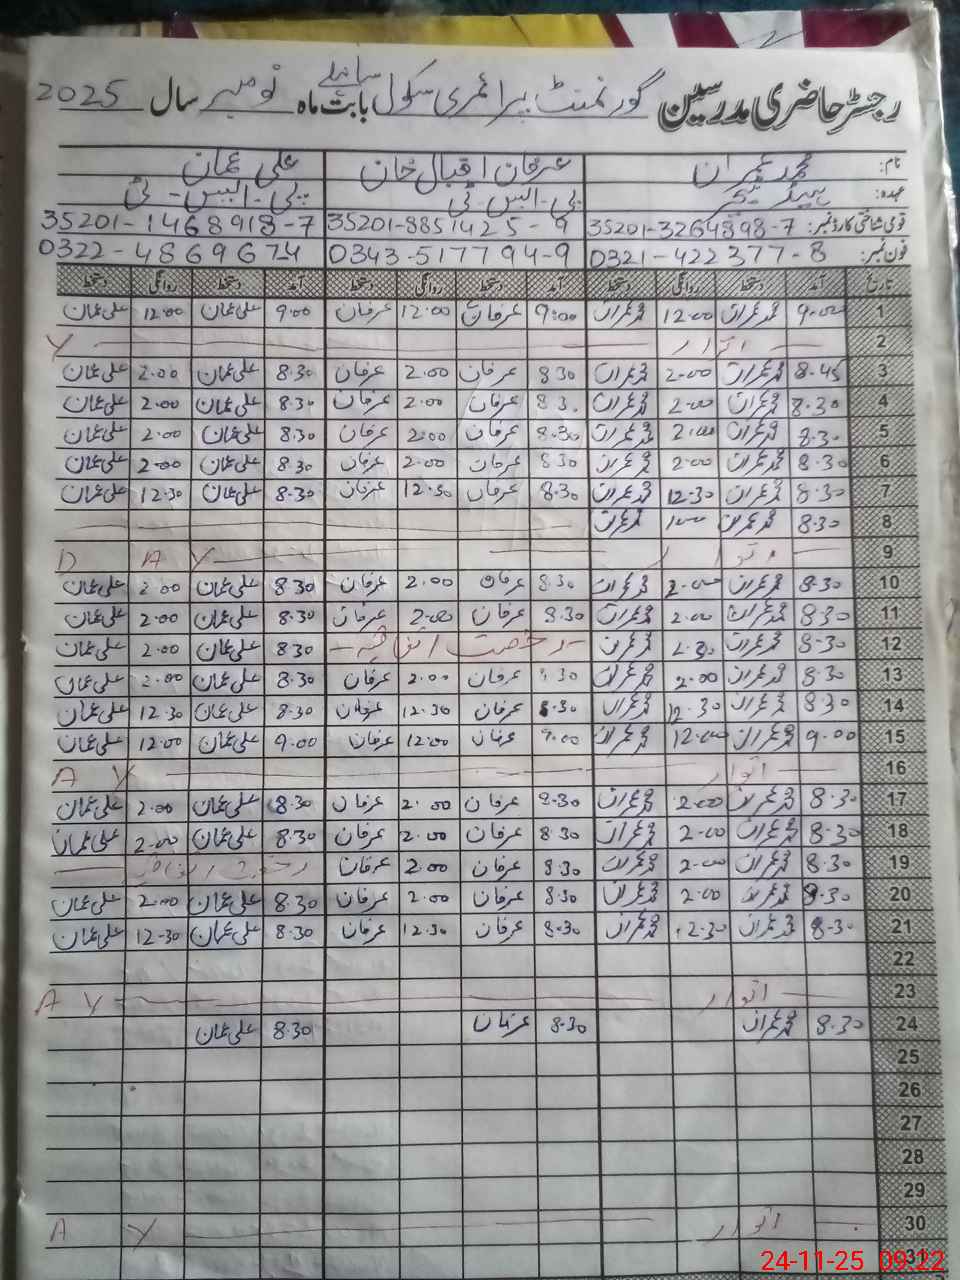 رجسٹر حاضری مدرسین گورنمنٹ پرائمری سکول بابت ماہ نومبر سال 2025
نام: محمد عمران عرفان اقبال خان علی عمان
عہدہ: ہیڈ ٹیچر پی۔ایس۔ٹی پی۔ایس۔ٹی
قومی شناختی کارڈ نمبر: 35201-3264898-7 35201-8851425-9 35201-1468918-7
فون نمبر: 0321-422377-8 0343-517794-9 0322-4869674
تاریخ آمد دستخط روانگی دستخط آمد دستخط روانگی دستخط آمد دستخط روانگی دستخط
1 9.00 محمد عمران 12.00 محمد عمران 9:00 عرفان 12.00 عرفان 9.00 علی عمان 12.00 علی عمان
2 اتوار Y
3 8.45 محمد عمران 2.00 محمد عمران 8.30 عرفان 2.00 عرفان 8.30 علی عمان 2.00 علی عمان
4 8.30 محمد عمران 2.00 محمد عمران 8.30 عرفان 2.00 عرفان 8.30 علی عمان 2.00 علی عمان
5 8.30 محمد عمران 2.00 محمد عمران 8.30 عرفان 2.00 عرفان 8.30 علی عمان 2.00 علی عمان
6 8.30 محمد عمران 2.00 محمد عمران 8.30 عرفان 2.00 عرفان 8.30 علی عمان 2.00 علی عمان
7 8.30 محمد عمران 12.30 محمد عمران 8.30 عرفان 12.30 عرفان 8.30 علی عمان 12.30 علی عمان
8 8.30 محمد عمران 1.00 محمد عمران
9 اتوار D A Y
10 8.30 محمد عمران 2.00 محمد عمران 8.30 عرفان 2.00 عرفان 8.30 علی عمان 2.00 علی عمان
11 8.30 محمد عمران 2.00 محمد عمران 8.30 عرفان 2.00 عرفان 8.30 علی عمان 2.00 علی عمان
12 8.30 محمد عمران محمد عمران رخصت اتفاقیہ 8.30 علی عمان 2.00 علی عمان
13 8.30 محمد عمران 2.00 محمد عمران 8.30 عرفان 2.00 عرفان 8.30 علی عمان 2.00 علی عمان
14 8.30 محمد عمران 12.30 محمد عمران 8.30 عرفان 12.30 عرفان 8.30 علی عمان 12.30 علی عمان
15 9.00 محمد عمران 12.00 محمد عمران 9.00 عرفان 12.00 عرفان 9.00 علی عمان 12.00 علی عمان
16 اتوار A Y
17 8.30 محمد عمران 2.00 محمد عمران 8.30 عرفان 2.00 عرفان 8.30 علی عمان 2.00 علی عمان
18 8.30 محمد عمران 2.00 محمد عمران 8.30 عرفان 2.00 عرفان 8.30 علی عمان 2.00 علی عمان
19 8.30 محمد عمران 2.00 محمد عمران 8.30 عرفان 2.00 عرفان رخصت اتفاقیہ
20 8.30 محمد عمران 2.00 محمد عمران 8.30 عرفان 2.00 عرفان 8.30 علی عمان 2.00 علی عمان
21 8.30 محمد عمران 12.30 محمد عمران 8.30 عرفان 12.30 عرفان 8.30 علی عمان 12.30 علی عمان
22
23 اتوار A Y
24 8.30 محمد عمران 8.30 عرفان 8.30 علی عمان
25
26
27
28
29
30 اتوار A Y
31
24-11-25 09:22